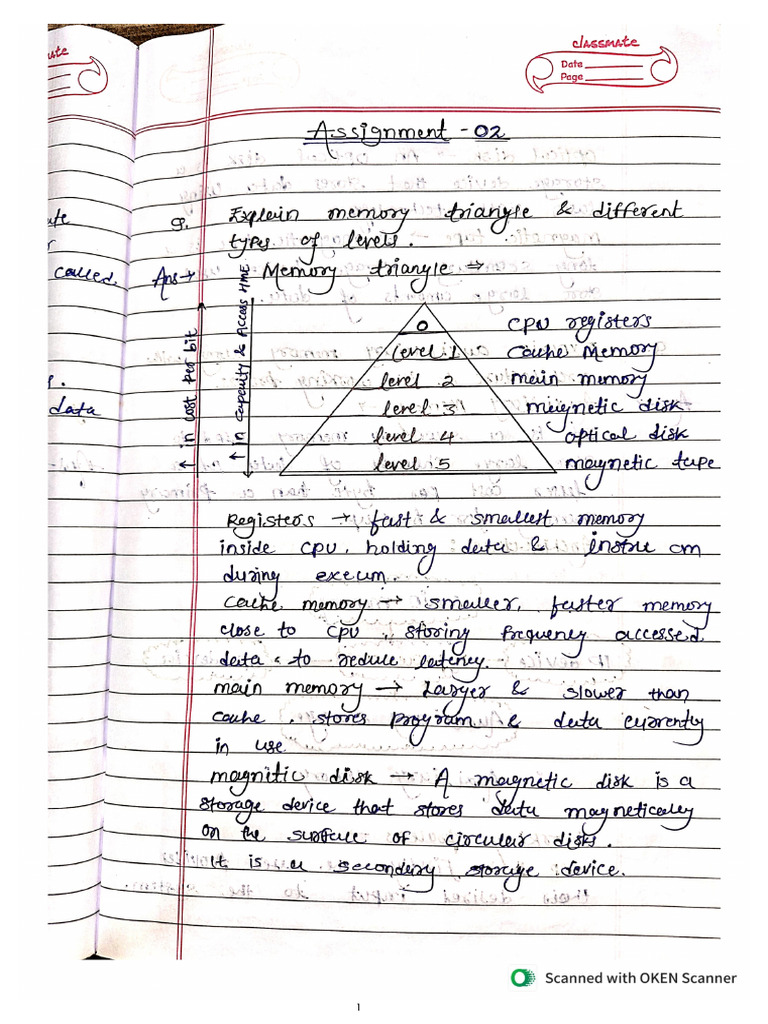 classmate
Date
Page
Assignment - 02
Q. Explain memory triangle & different
types of levels.
Ans → Memory triangle ⇒
↑ in cost per bit
↑ in capacity & Access time
0 CPU registers
level 1 cache Memory
level 2 main memory
level 3 magnetic disk
level 4 optical disk
level 5 magnetic tape
Registers → fast & smallest memory
inside CPU, holding data & instru cm
during execum.
cache memory → smaller, faster memory
close to CPU, storing frequency accessed
data to reduce latency.
main memory → Larger & slower than
cache, stores program & data currently
in use
magnitic disk → A magnetic disk is a
storage device that stores data magnetically
on the surface of circular disks.
It is a secondery storage device.
called.
data
Scanned with OKEN Scanner
1